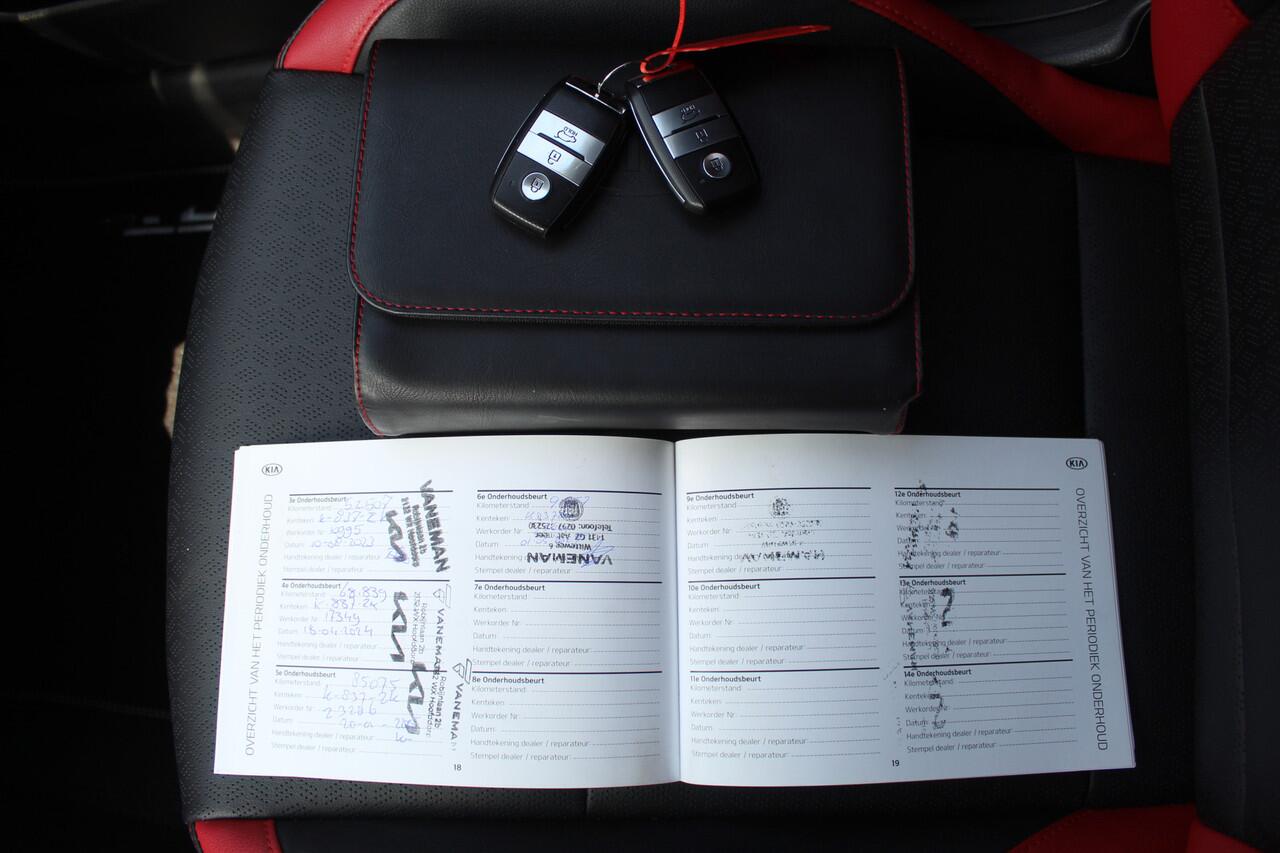 HOLD
HOLD
KIA
OVERZICHT VAN HET PERIODIEK ONDERHOUD
3e Onderhoudsbeurt
Kilometerstand: 52507
Kenteken: K-837-ZK
Werkorder Nr: 10995
Datum: 10-08-2023
Handtekening dealer / reparateur:
Stempel dealer / reparateur:
VANEMAN
Robijnlaan 2b
2132 WX Hoofddorp
KIA
4e Onderhoudsbeurt
Kilometerstand: 68.839
Kenteken: K-837-ZK
Werkorder Nr: 17349
Datum: 18-04-2024
Handtekening dealer / reparateur:
Stempel dealer / reparateur:
KIA
VANEMAN
Robijnlaan 2b
2132 WX Hoofddorp
5e Onderhoudsbeurt
Kilometerstand: 85075
Kenteken: K-837-ZK
Werkorder Nr: 23286
Datum:
Handtekening dealer / reparateur:
Stempel dealer / reparateur:
KIA
VANEMAN
Robijnlaan 2b
2132 WX Hoofddorp
6e Onderhoudsbeurt
Kilometerstand:
Kenteken:
Werkorder Nr:
Datum:
Handtekening dealer / reparateur:
Stempel dealer / reparateur:
VANEMAN
Witteweg 6
1431 GZ Aalsmeer
Telefoon: 0297
7e Onderhoudsbeurt
Kilometerstand:
Kenteken:
Werkorder Nr:
Datum:
Handtekening dealer / reparateur:
Stempel dealer / reparateur:
8e Onderhoudsbeurt
Kilometerstand:
Kenteken:
Werkorder Nr:
Datum:
Handtekening dealer / reparateur:
Stempel dealer / reparateur:
18
KIA
OVERZICHT VAN HET PERIODIEK ONDERHOUD
9e Onderhoudsbeurt
Kilometerstand:
Kenteken:
Werkorder Nr:
Datum:
Handtekening dealer / reparateur:
Stempel dealer / reparateur:
10e Onderhoudsbeurt
Kilometerstand:
Kenteken:
Werkorder Nr:
Datum:
Handtekening dealer / reparateur:
Stempel dealer / reparateur:
11e Onderhoudsbeurt
Kilometerstand:
Kenteken:
Werkorder Nr:
Datum:
Handtekening dealer / reparateur:
Stempel dealer / reparateur:
12e Onderhoudsbeurt
Kilometerstand:
Kenteken:
Werkorder Nr:
Datum:
Handtekening dealer / reparateur:
Stempel dealer / reparateur:
13e Onderhoudsbeurt
Kilometerstand:
Kenteken:
Werkorder Nr:
Datum:
Handtekening dealer / reparateur:
Stempel dealer / reparateur:
14e Onderhoudsbeurt
Kilometerstand:
Kenteken:
Werkorder Nr:
Datum:
Handtekening dealer / reparateur:
Stempel dealer / reparateur:
19